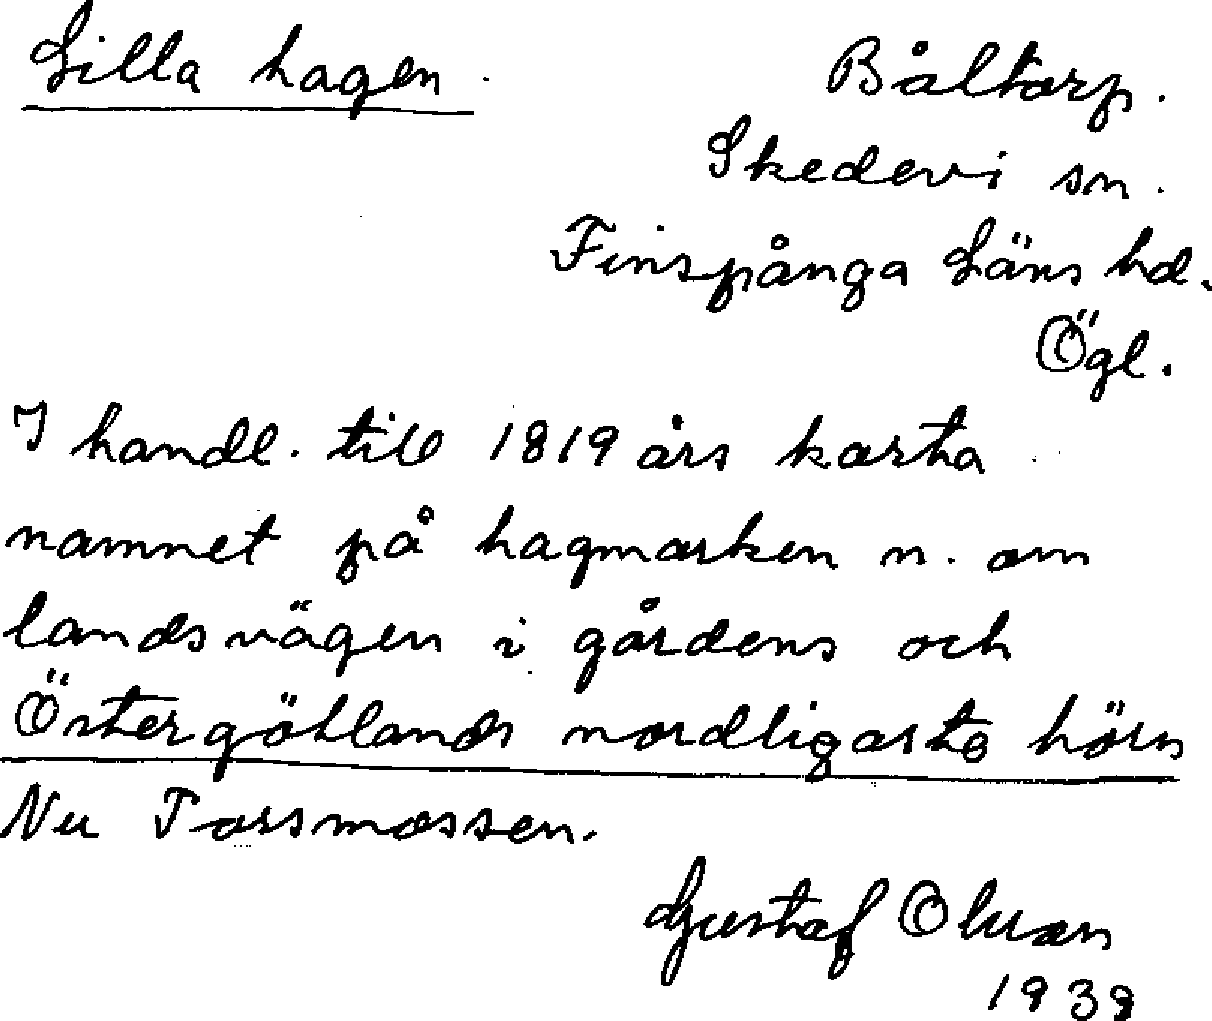 Lilla hagen.
Båltorp.
Skedevi sn.
Finspånga Läns hd.
Ögl.
I handl. till 1819 års karta
namnet på hagmarken n. om
landsvägen i gårdens och
Östergötlands nordligaste hörn
Nu Torsmossen.
Gustaf Olsson
1939